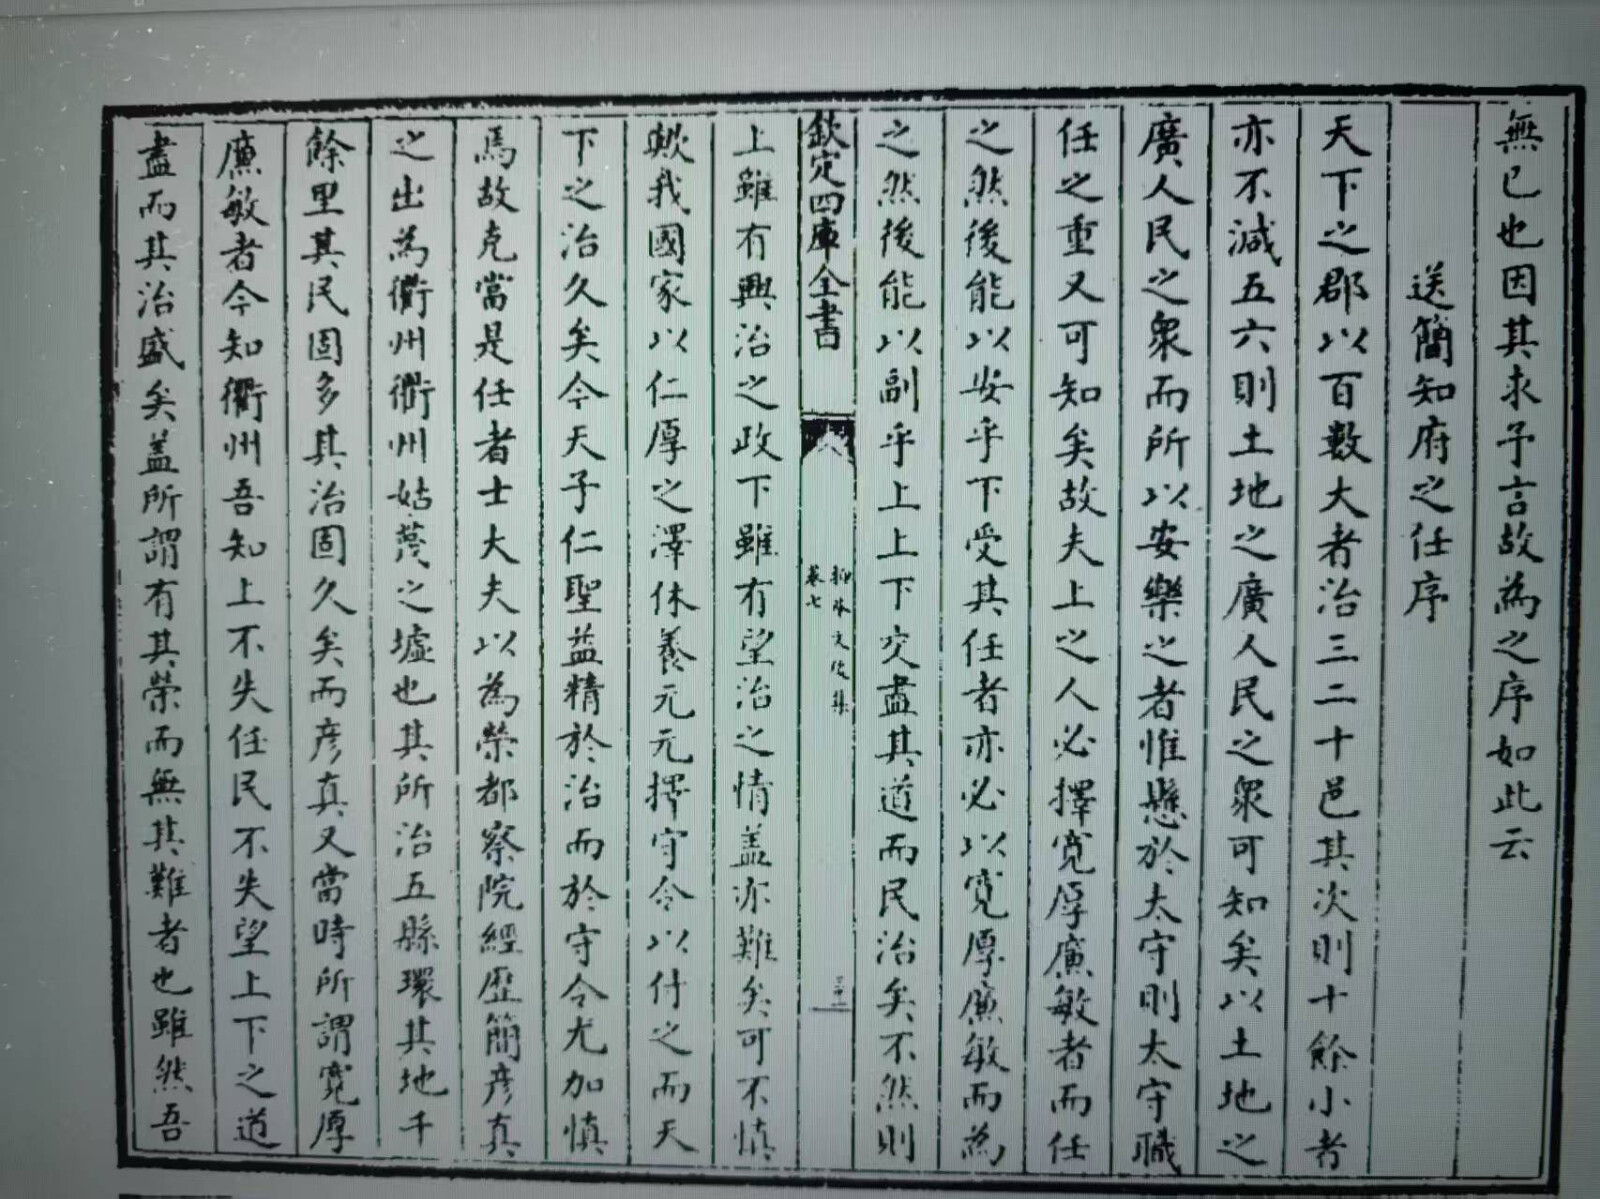 無已也因其求予言故為之序如此云
送簡知府之任序
天下之郡以百數大者治三二十邑其次則十餘小者
亦不減五六則土地之廣人民之衆可知矣以土地之
廣人民之衆而所以安樂之者惟懸於太守則太守職
任之重又可知矣故夫上之人必擇寬厚廉敏者而任
之然後能以安乎下受其任者亦必以寬厚廉敏而為
之然後能以副乎上上下交盡其道而民治矣不然則
欽定四庫全書
抑菴文後集
卷七
三十二
上雖有興治之政下雖有望治之情盖亦難矣可不慎
歟我國家以仁厚之澤休養元元擇守令以付之而天
下之治久矣今天子仁聖益精於治而於守令尤加慎
焉故克當是任者士大夫以為榮都察院經歴簡彦真
之出為衢州衢州姑蔑之墟也其所治五縣環其地千
餘里其民固多其治固久矣而彦真又當時所謂寬厚
廉敏者今知衢州吾知上不失任民不失望上下之道
盡而其治盛矣盖所謂有其榮而無其難者也雖然吾